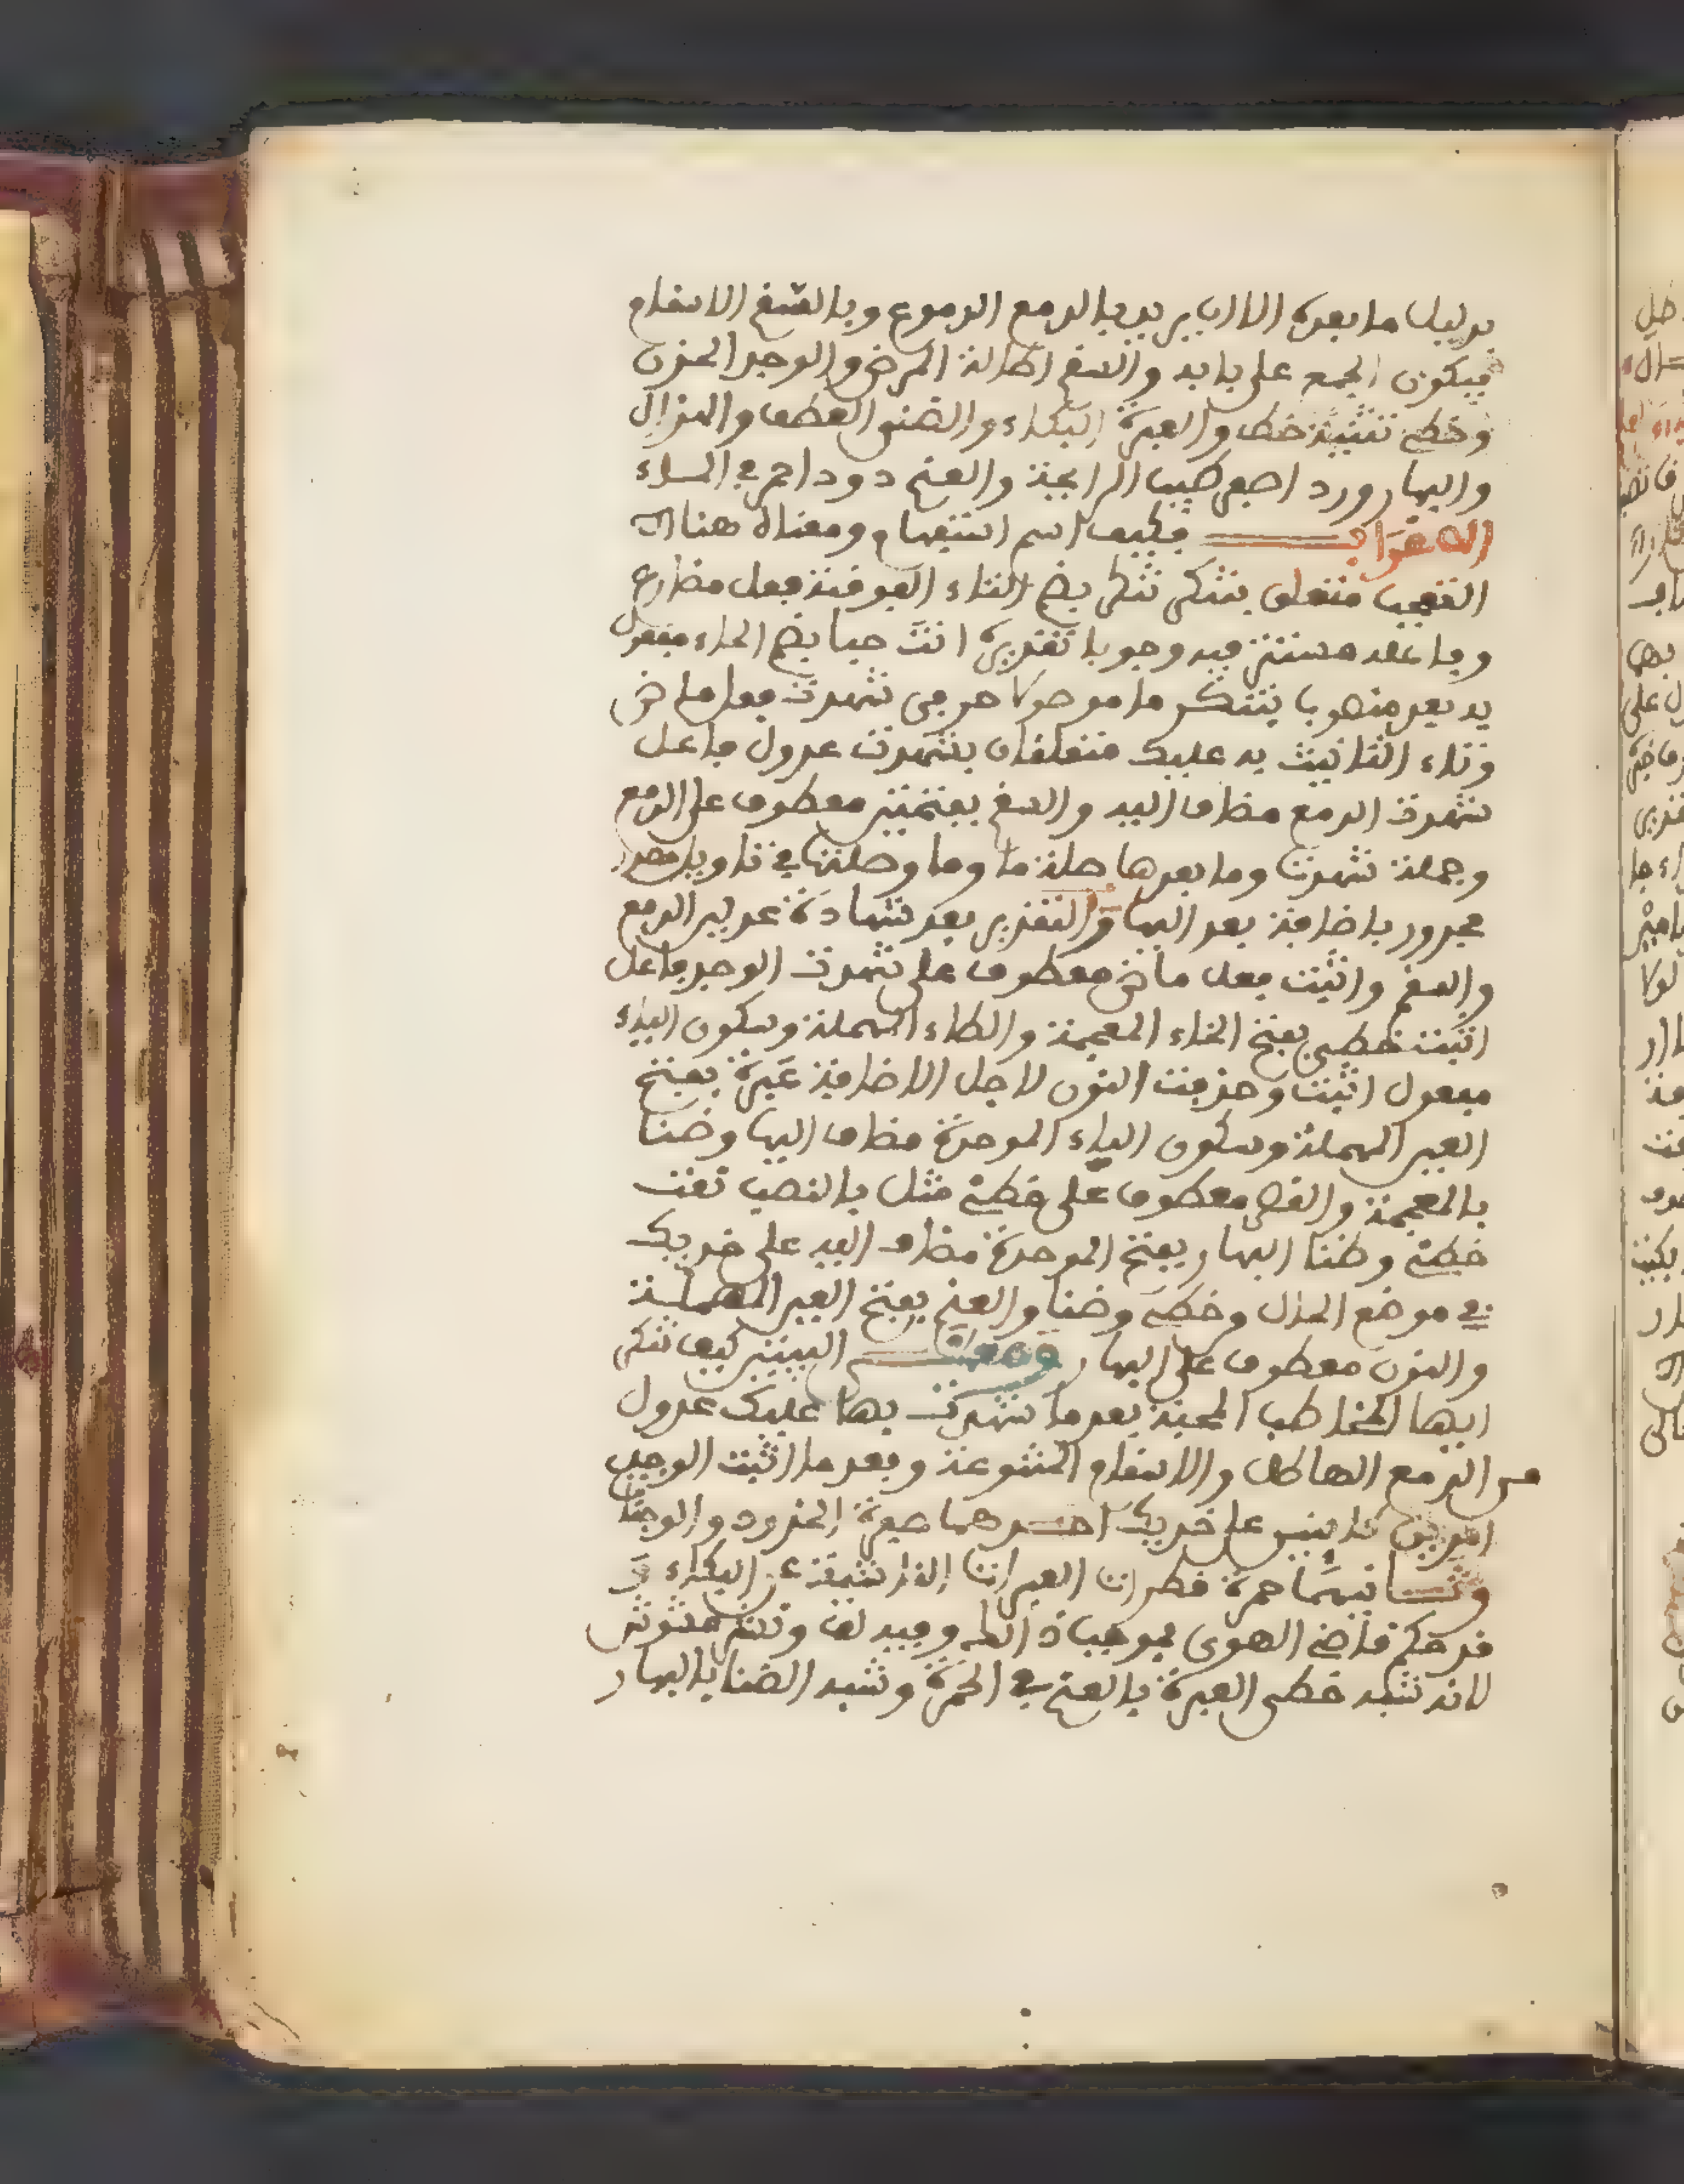 بدليل ما بعده الا ان يريد بالدمع الدموع وبالسقم الاسقام
فيكون الجمع على بابه والسقم اطالة المرض والوجد الحزن
وخطي تثنية خط والعبرة البكاء والضنى الضعف والهزال
والبهار ورد اصفر طيب الرائحة والعنم دود احمر في
الاعراب فكيف اسم استفهام ومعناه هنا
التعجب متعلق بتنكر تنكر بضم التاء الفوقية فعل مضارع
وفاعله مستتر فيه وجوبا تقديره انت حبا بضم الحاء مفعول
به بعد منصوب بتنكر ما موصول حرفي شهدت فعل ماض
وتاء التانيث به عليك متعلقان بشهدت عدول فاعل
شهدت الدمع مضاف اليه والسقم بفتحتين معطوف على الدمع
وجملة شهدت وما بعدها صلة ما وما وصلتها في تاويل مصدر
مجرور باضافة بعد اليها والتقدير بعد شهادة عدلين الدمع
والسقم واثبت فعل ماض معطوف على شهدت الوجد فاعل
اثبت خطي بفتح الخاء المعجمة والطاء المهملة وسكون الياء
مفعول اثبت وحذفت النون لاجل الاضافة عَبرة بفتح
العين المهملة وسكون الباء الموحدة مضاف اليها وضنا
بالمعجمة والقصر معطوف على خطي مثل بالنصب نعت
خطي وضنا البهار بفتح الموحدة مضاف اليه على خديك
في موضع الحال وخطي وضنا والعنم بفتح العين المهملة
والنون معطوف على البهار ومعنى البيتين كيف تنكر
ايها المخاطب المحبة بعد ما شهدت بها عليك عدول
من الدمع الهاطل والاسقام المتنوعة وبعد ما اثبت الوجد
امرين على خديك احدهما صفرة الخدود والوجنات
وثانيهما حمرة قطرات العبرات الناشئة عن البكاء و
قد حكم قاضي الهوى بموجبات وفيه لف ونشر
لانه شبه خطي العبرة بالعنم في الحمرة وشبه الضنا بالبهار